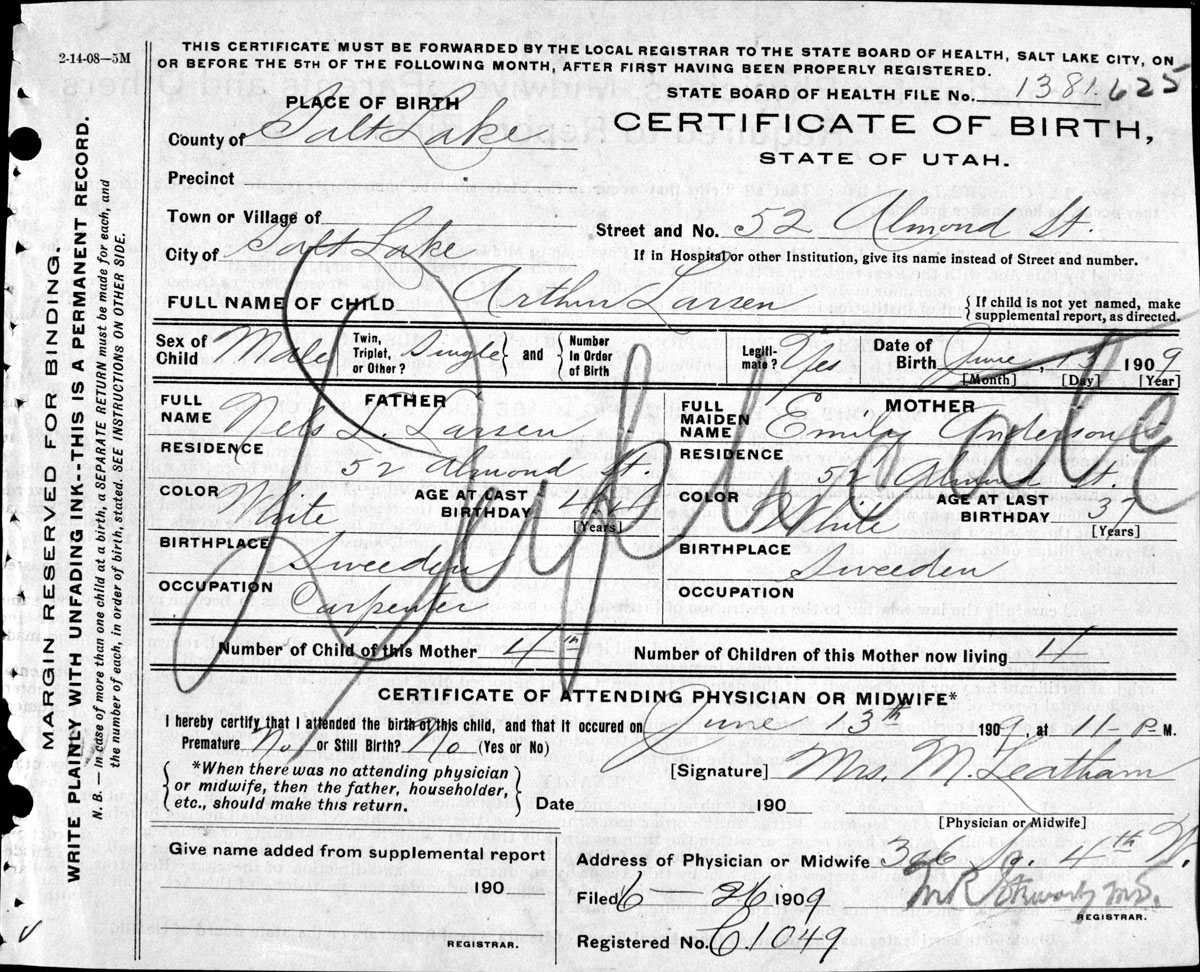 2-14-08—5M
THIS CERTIFICATE MUST BE FORWARDED BY THE LOCAL REGISTRAR TO THE STATE BOARD OF HEALTH, SALT LAKE CITY, ON
OR BEFORE THE 5TH OF THE FOLLOWING MONTH, AFTER FIRST HAVING BEEN PROPERLY REGISTERED.
STATE BOARD OF HEALTH FILE No. 1381 625
PLACE OF BIRTH
CERTIFICATE OF BIRTH,
STATE OF UTAH.
County of Salt Lake
Precinct
Town or Village of
Street and No. 52 Almond St.
City of Salt Lake
If in Hospital or other Institution, give its name instead of Street and number.
FULL NAME OF CHILD Arthur Larsen
{If child is not yet named, make
supplemental report, as directed.
Sex of Child Male
Twin, Triplet, or Other? Single} and {Number In Order of Birth
Legiti-mate? Yes
Date of Birth June, 13 1909
[Month] [Day] [Year]
Duplicate
FATHER
FULL NAME Nels L. Larsen
RESIDENCE 52 Almond St.
COLOR White
AGE AT LAST BIRTHDAY 42
[Years]
BIRTHPLACE Sweeden
OCCUPATION Carpenter
MOTHER
FULL MAIDEN NAME Emily Anderson
RESIDENCE 52 Almond St.
COLOR White
AGE AT LAST BIRTHDAY 37
[Years]
BIRTHPLACE Sweeden
OCCUPATION
Number of Child of this Mother 4th
Number of Children of this Mother now living 4
CERTIFICATE OF ATTENDING PHYSICIAN OR MIDWIFE*
I hereby certify that I attended the birth of this child, and that it occured on June 13th 1909, at 11- P M.
Premature No or Still Birth? No (Yes or No)
{*When there was no attending physician
or midwife, then the father, householder,
etc., should make this return.}
[Signature] Mrs. M. Leatham
Date 190
[Physician or Midwife]
Give name added from supplemental report
190
REGISTRAR.
Address of Physician or Midwife 366 So. 4th W.
Filed 6-26 1909
REGISTRAR.
Registered No. C1049
MARGIN RESERVED FOR BINDING.
WRITE PLAINLY WITH UNFADING INK--THIS IS A PERMANENT RECORD.
N. B.— In case of more than one child at a birth, a SEPARATE RETURN must be made for each, and
the number of each, in order of birth, stated. SEE INSTRUCTIONS ON OTHER SIDE.